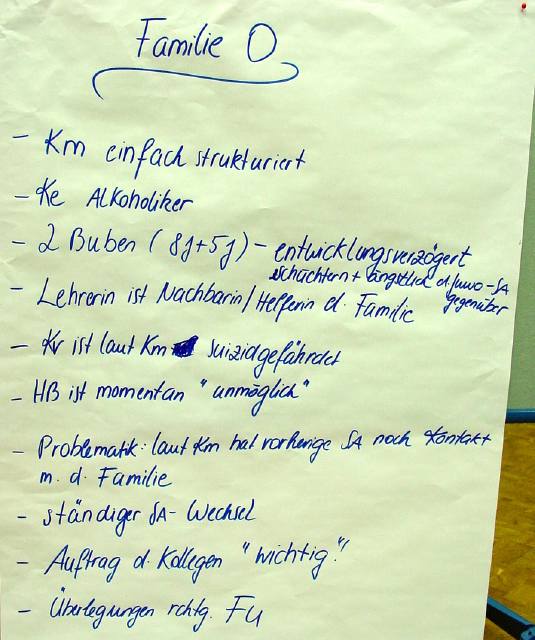 Familie O
- Km einfach strukturiert
- Ke Alkoholiker
- 2 Buben (8j+5j) - entwicklungsverzögert
schüchtern + ängstlich d. Juwo-SA
gegenüber
- Lehrerin ist Nachbarin/Helferin d. Familie
- Kv ist laut Km suizidgefährdet
- HB ist momentan "unmöglich"
- Problematik: laut Km hat vorherige SA noch Kontakt
m. d. Familie
- ständiger SA-Wechsel
- Auftrag d. Kollegen "wichtig!"
- Überlegungen rchtg. FU